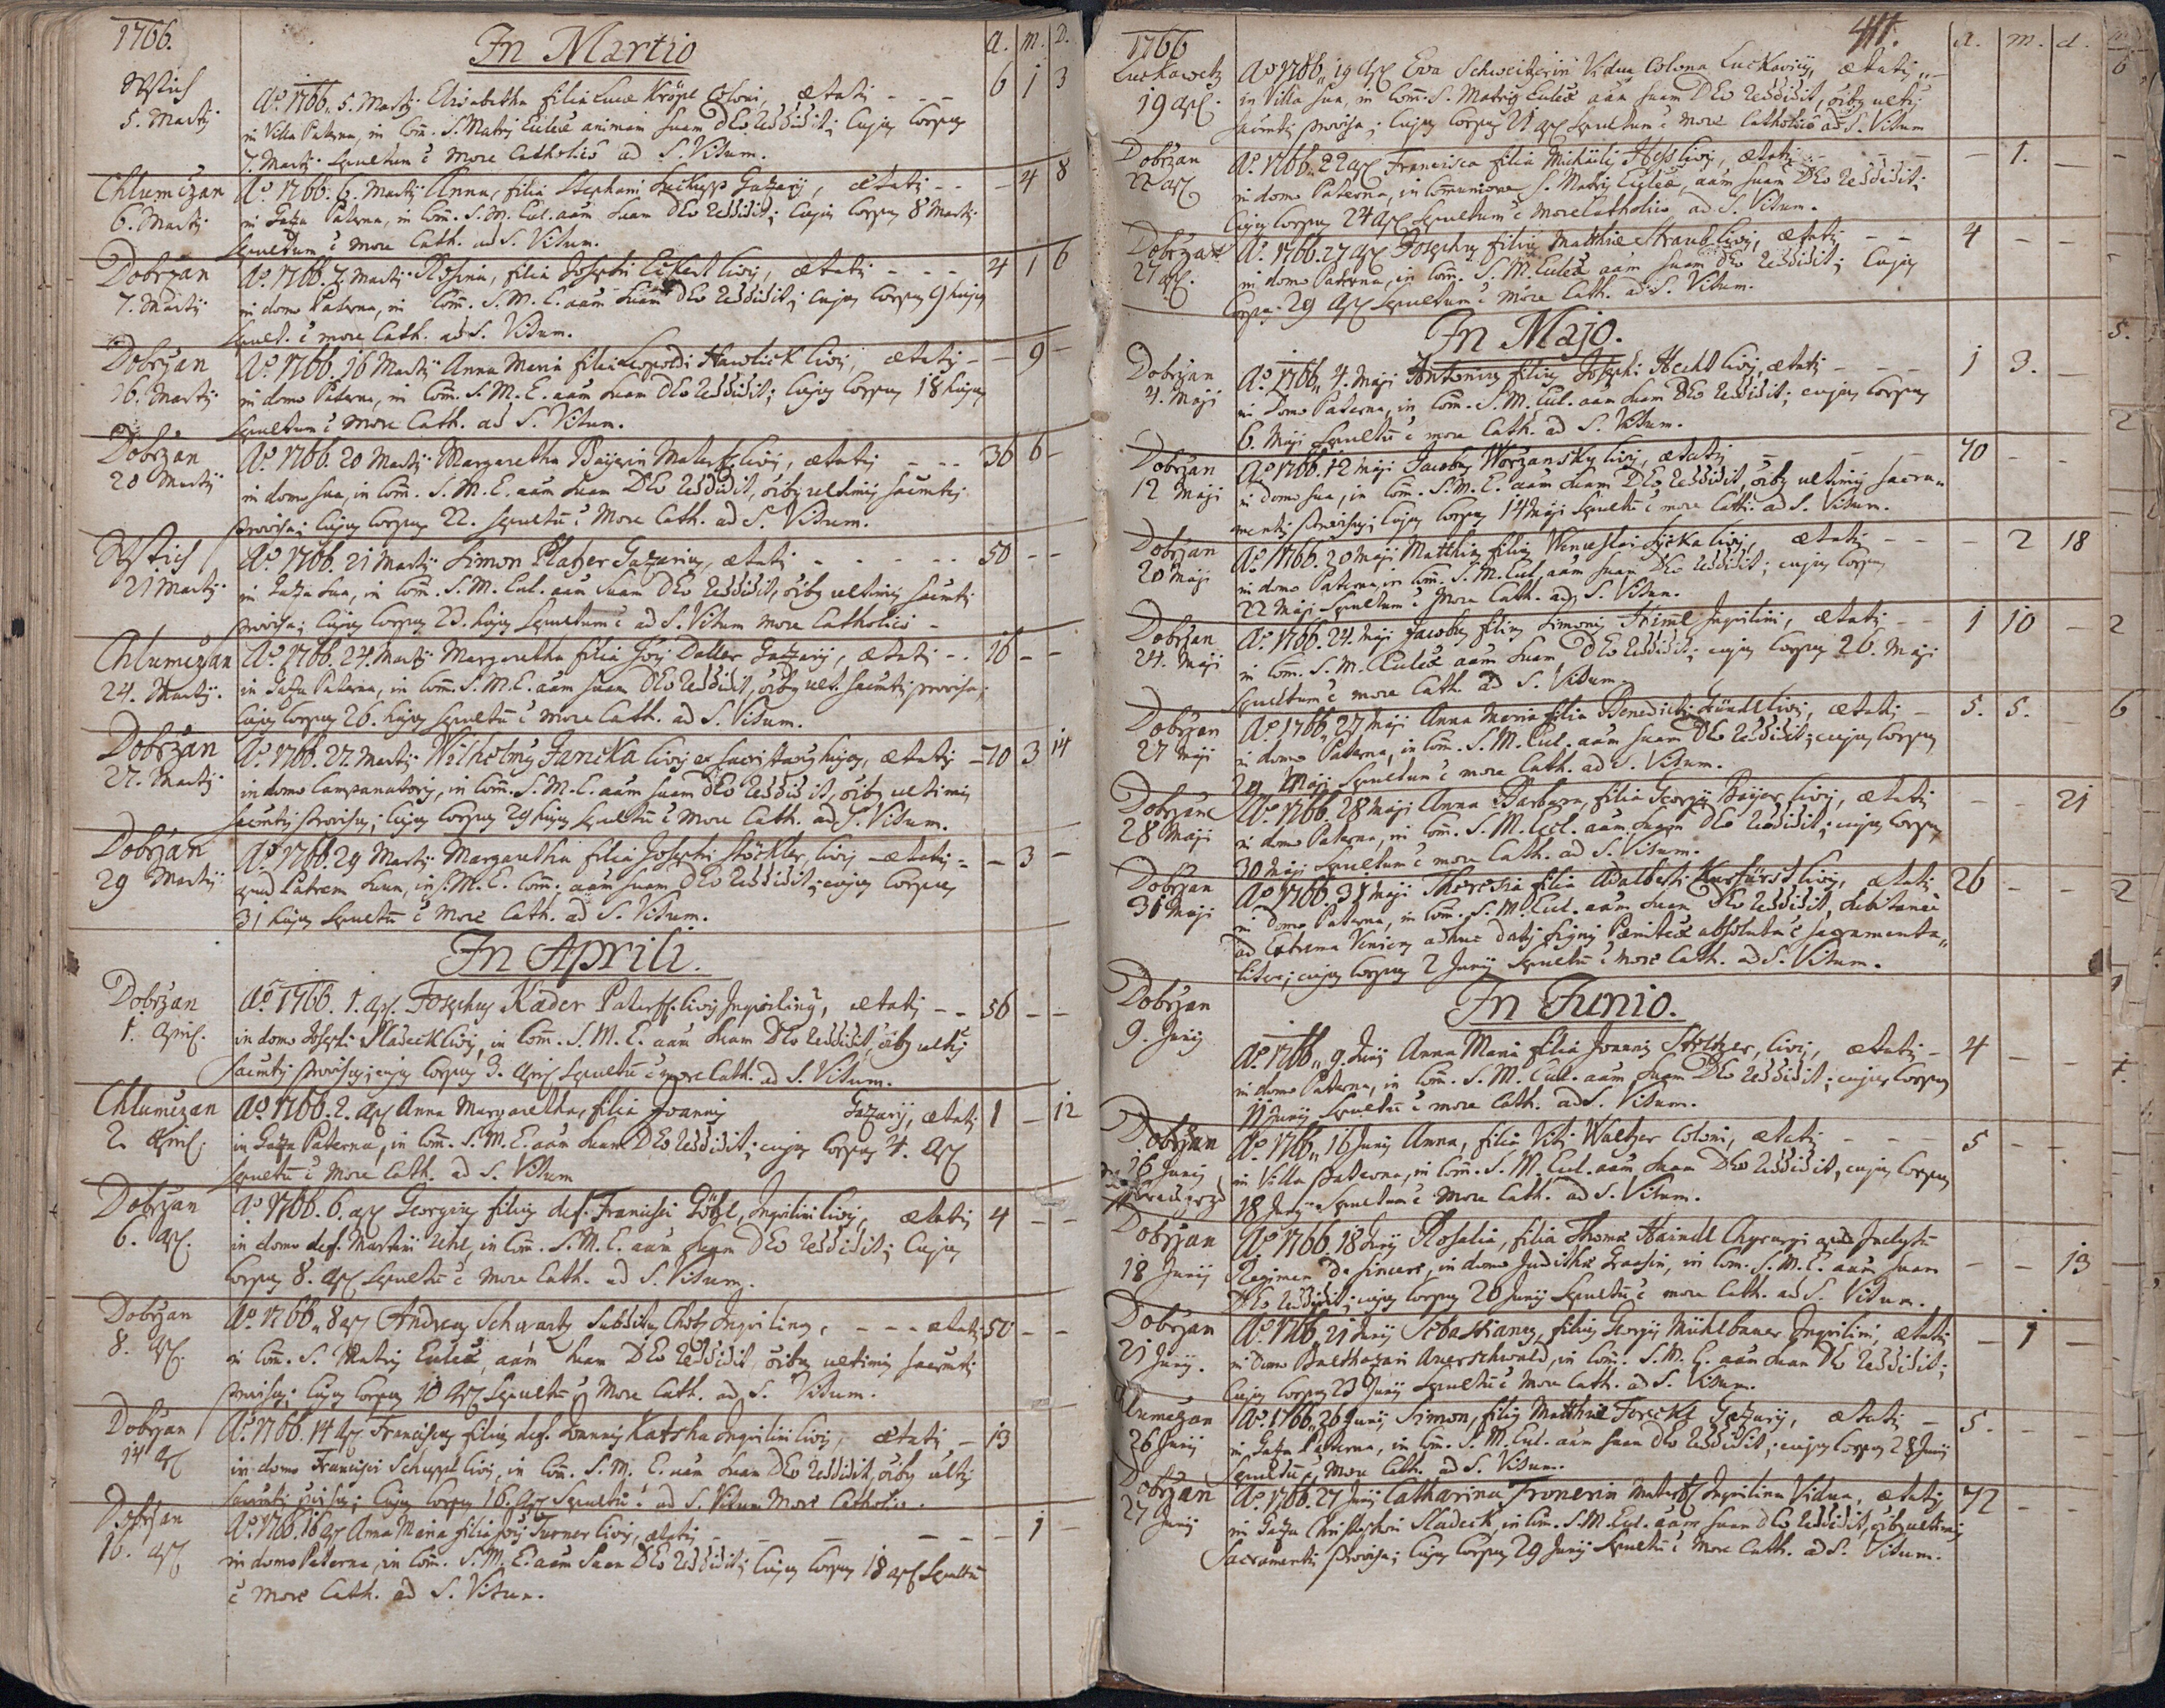 1766.
In Martio
a. m. D.
Wstich
5. Martij
Aō. 1766. 5. Martij Elisabetha filia Lucæ Kröpl Coloni, ætatis - - - 6 1 3
in Villa Paterna, in Com̄. S. Matris Eccleæ animam suam DEo reddidit; Cujus Corpus
7. Martij Sepultum ē More Catholico ad S. Vitum.
Chlumčzan
6. Martij
Aō. 1766. 6. Martij Anna, filia Stephani Gazarij, ætatis - - - 4 8
in Gaza Paterna, in Com̄. S. M. Ecl. aām suam DEo reddidit; Cujus Corpus 8 Martij
Sepultum ē More Cath. ad S. Vitum.
Dobržan
7. Martij
Aō. 1766. 7. Martij Rosina, filia Josephi Eckert Civis, ætatis - - - 4 1 6
in domo Paterna, in Com̄. S. M. E. aām suam DEo reddidit; Cujus Corpus 9 hujus
Sepult. ē more Cath. ad S. Vitum.
Dobržan
16. Martij
Aō. 1766. 16 Martij Anna Maria filia Leopoldi Hawlick Civis, ætatis - - 9 -
in domo Paterna, in Com̄. S. M. E. aām suam DEo reddidit; Cujus Corpus 18 hujus
Sepultum ē More Cath. ad S. Vitum.
Dobržan
20 Martij
Aō. 1766. 20 Martij Margaretha Baÿerin Materf. Civis, ætatis - - - 36 6 -
in domo sua, in Com̄. S. M. E. aām suam DEo reddidit, oib9 ultimis sacmtis
provisa; Cujus Corpus 22. Sepultū ē More Cath. ad S. Vitum.
Wstich
21 Martij
Aō. 1766. 21 Martij Simon Platzer Gazarius, ætatis - - - - - 50 - -
in Gaza sua, in Com̄. S. M. Ecl. aām suam DEo reddidit, oib9 ultimis sacmtis
provisus; Cujus Corpus 23. hujus Sepultum ē ad S. Vitum More Catholico -
Chlumčzan
24. Martij
Aō. 1766. 24. Martij Margaretha filia Gazarij, ætatis - - 16 - -
in Gaza Paterna, in Com̄. S. M. E. aām suam DEo reddidit, oib9 ult. sacmtis provisa;
Cujus Corpus 26. hujus Sepultū ē More Cath. ad S. Vitum.
Dobržan
27. Martij
Aō. 1766. 27. Martij Wilhelmus Janicka Civis et sacristanus hujus, ætatis - 70 3 14
in domo Campanatoris, in Com̄. S. M. E. aām suam DEo reddidit, oib9 ultimis
sacmtis provisus; Cujus Corpus 29 hujus Sepultū ē More Cath. ad S. Vitum.
Dobržan
29 Martij
Aō. 1766. 29 Martij Margaretha filia Josephi Stöckler, Civis - ætatis - - 3 -
apud Patrem suum, in S. M. E. Com̄. aām suam DEo reddidit; cujus Corpus
31 hujus Sepultū ē More Cath. ad S. Vitum.
In Aprili.
Dobržan
1. April.
Aō 1766. 1. Apr. Josephus Kader Paterf. Civis Inquilinus, ætatis - - 56 - -
in domo Josephi Sladeck Civis, in Com̄. S. M. E. aām suam DEo reddidit, oib9 ultis
sacmtis provisus; cujus Corpus 3. Apr. Sepultū ē more Cath. ad S. Vitum.
Chlumčzan
2. April.
Aō. 1766. 2. Apr. Anna Margaretha, filia Joannis Gazarij, ætatis 1 - 12
in Gaza Paterna, in Com̄. S. M. E. aām suam DEo reddidit; cujus Corpus 4. Apr.
Sepultū ē More Cath. ad S. Vitum
Dobržan
6. Apr.
Aō. 1766. 6. Apr. Georgius filius def. Francisci Götzl, Inquilini Civis, ætatis 4 - -
in domo def. Martini Uhl, in Com̄. S. M. E. aām suam DEo reddidit; Cujus
Corpus 8. Apr. Sepultū ē More Cath. ad S. Vitum.
Dobržan
8. Apr.
Aō. 1766. 8 Apr. Andreas Schwartz Subditus Inquilinus, - - - ætatis 50 - -
in Com̄. S. Matris Eccleæ, aām suam DEo reddidit, oib9 ultimis sacmtis
provisus; Cujus Corpus 10 Apr. Sepultū ē More Cath. ad S. Vitum.
Dobržan
14 Apr.
Aō. 1766. 14 Apr. Franciscus filius def. Joannis Katska Inquilini Civis, ætatis - 13
in domo Francisci Schuppl Civis, in Com̄. S. M. E. aām suam DEo reddidit, oib9 ultis
sacmtis provisus; Cujus Corpus 16. Apr. Sepultū ē ad S. Vitum More Catholico.
Dobržan
16. Apr.
Aō. 1766. 16 Apr. Anna Maria filia Turner Civis, ætatis - - - - 1 -
in domo Paterna, in Com̄. S. M. E. aām suam DEo reddidit; Cujus Corpus 18 Apr. Sepultū
ē More Cath. ad S. Vitum.
411.
1766
a. m. d.
Luckawetz
19 Apr.
Aō 1766. 19 Apr. Eva Schweitzerin Vidua Colona Luckavicij, ætatis -
in Villa sua, in Com̄. S. Matris Eccleæ aām suam DEo reddidit, oib9 ultis
sacmtis provisa; Cujus Corpus 21 Apr. Sepultum ē More Catholico ad S. Vitum
Dobržan
22 Apr.
Aō. 1766. 22 Apr. Francisca filia Michaelis Hess Civis, ætatis - - - 1. -
in domo Paterna, in Comunione S. Matris Eccleæ, aām suam DEo reddidit;
Cujus Corpus 24 Apr. Sepultum ē More Catholico ad S. Vitum.
Dobržan
27 Apr.
Aō. 1766. 27 Apr. Josephus filius Matthiæ Straub Civis, ætatis - - 4 - -
in domo Paterna, in Com̄. S. M. Eccleæ aām suam DEo reddidit; Cujus
Corpus 29 Apr. Sepultum ē More Cath. ad S. Vitum.
In Majo.
Dobržan
4. Maji
Aō. 1766. 4. Maji Antonius filius Josephi Hecht Civis, ætatis - - - 1 3. -
in Domo Paterna, in Com̄. S. M. Ecl. aām suam DEo reddidit; cujus Corpus
6. Maji Sepultū ē more Cath. ad S. Vitum.
Dobržan
12 Maji
Aō. 1766. 12 Maji Jacobus Woržansky Civis, ætatis - - - 70 - -
in domo sua, in Com̄. S. M. E. aām suam DEo reddidit, oib9 ultimis sacra-
mentis provisus; Cujus Corpus 14 Maji Sepultū ē more Cath. ad S. Vitum.
Dobržan
20 Maji
Aō. 1766. 20 Maji Matthias filius Wenceslai Civis, ætatis - - - 2 18
in domo Paterna, in Com̄. S. M. Ecl. aām suam DEo reddidit; cujus Corpus
22 Maji Sepultum ē More Cath. ad S. Vitum.
Dobržan
24. Maji
Aō. 1766. 24. Maji Jacobus filius Simonis Him̄l Inquilini, ætatis - - 1 10 -
in Com̄. S. M. Eccleæ aām suam DEo reddidit; cujus Corpus 26. Maji
Sepultum ē more Cath. ad S. Vitum.
Dobržan
27 Maji
Aō. 1766. 27 Maji Anna Maria filia Benedicti Civis, ætatis - 5. 5. -
in domo Paterna, in Com̄. S. M. Ecl. aām suam DEo reddidit; cujus Corpus
29 Maji Sepultum ē more Cath. ad S. Vitum.
Dobržan
28 Maji
Aō. 1766. 28 Maji Anna Barbara, filia Georgij Baÿer Civis, ætatis - - 21
in domo Paterna, in Com̄. S. M. Eccl. aām suam DEo reddidit; cujus Corpus
30 Maji Sepultum ē more Cath. ad S. Vitum.
Dobržan
31 Maji
Aō. 1766. 31 Maji Theresia filia Adalberti Kurfürst Civis, ætatis 26 - -
in domo Paterna, in Com̄. S. M. Ecl. aām suam DEo reddidit, subitanee
ad Extrema Veniens adhuc datis signis Pœnitæ absoluta ē sacramenta-
liter; cujus Corpus 2 Junij Sepultū ē more Cath. ad S. Vitum.
In Junio.
Dobržan
9. Junij
Aō. 1766. 9. Junij Anna Maria filia Joannis Civis, ætatis - 4 - -
in domo Paterna, in Com̄. S. M. Ecl. aām suam DEo reddidit; cujus Corpus
11 Junij Sepultū ē more Cath. ad S. Vitum.
Dobržan
16 Junij
Aō. 1766. 16 Junij Anna, filia Viti Waltzer Coloni, ætatis - - - 5 - -
in Villa Paterna, in Com̄. S. M. Ecl. aām suam DEo reddidit, cujus Corpus
18 Junij Sepultum ē More Cath. ad S. Vitum.
Dobržan
18 Junij
Aō. 1766. 18 Junij Rosalia, filia Thomæ Haindl Chyrurgi apud Inclytū
Regimen De Sincere, in domo Judithæ Graasin, in Com. S. M. E. aām suam - - 13
DEo reddidit; cujus Corpus 20 Junij Sepultū ē more Cath. ad S. Vitum.
Dobržan
21 Junij.
Aō. 1766. 21 Junij Sebastianus, filius Georgij Mühlbauer Inquilini, ætatis - 1 -
in domo Balthazari Auerschwald, in Com̄. S. M. E. aām suam DEo reddidit;
Cujus Corpus 23 Junij Sepultū ē More Cath. ad S. Vitum.
Chlumčzan
26 Junij
Aō. 1766. 26 Junij Simon, filius Matthiæ Gazarij, ætatis - 5. - -
in Gaza Paterna, in Com̄. S. M. Ecl. aām suam DEo reddidit; cujus Corpus 28 Junij
Sepultū ē More Cath. ad S. Vitum.
Dobržan
27 Junij
Aō. 1766. 27 Junij Catharina Fronerin Materf. Inquilina Vidua, ætatis 72 - -
in Gaza Christophori Sladeck, in Com. S. M. Ecl. aām suam DEo reddidit, oib9 ultimis
Sacramentis provisa; Cujus Corpus 29 Junij Sepultū ē More Cath. ad S. Vitum.